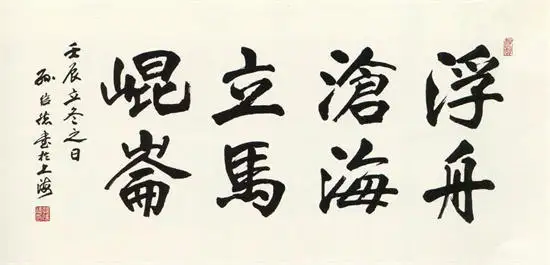 浮舟
滄海
立馬
崐崙
壬辰立冬之日
孫信德書於上海